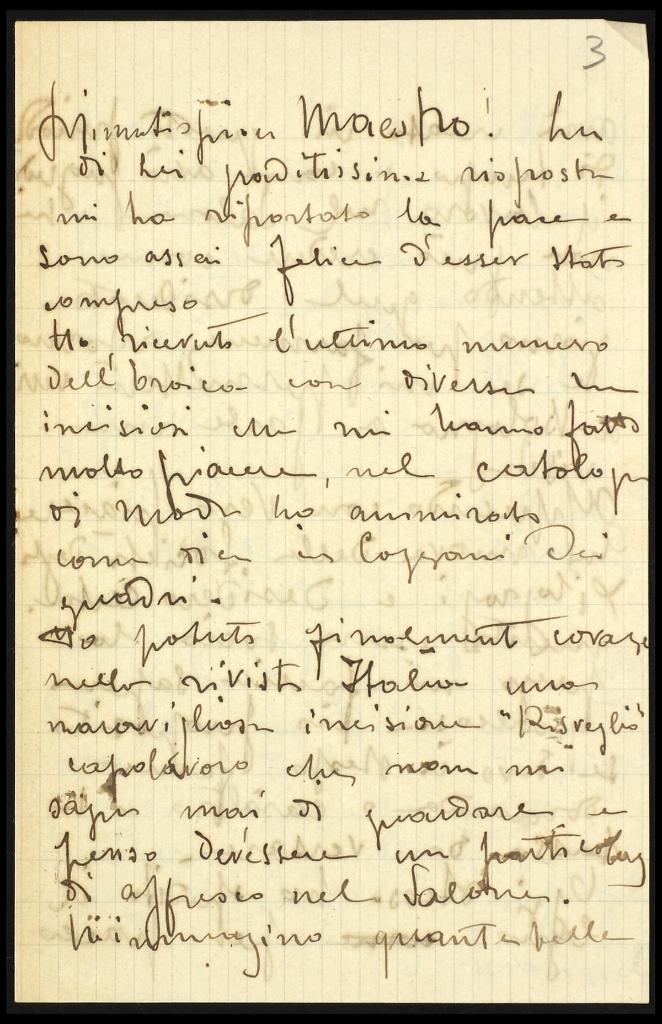 3
Maestro! La
di Lei graditissima risposta
mi ha riportato la pace e
sono assai felice d'esser stato
compreso
Ho ricevuto l'ultimo numero
dell'Eroica con diverse
incisioni che mi hanno fatto
molto piacere, nel catalogo
di Modi ho ammirato
come dice in Cozzani Dei
quadri.
Ho potuto finalment
nella rivista Italia una
maravigliosa incisione "Risveglio"
capolavoro che non mi
mai di guardare e
penso dev'essere un particolare
di affresco nel Salone.
M'immagino quante belle